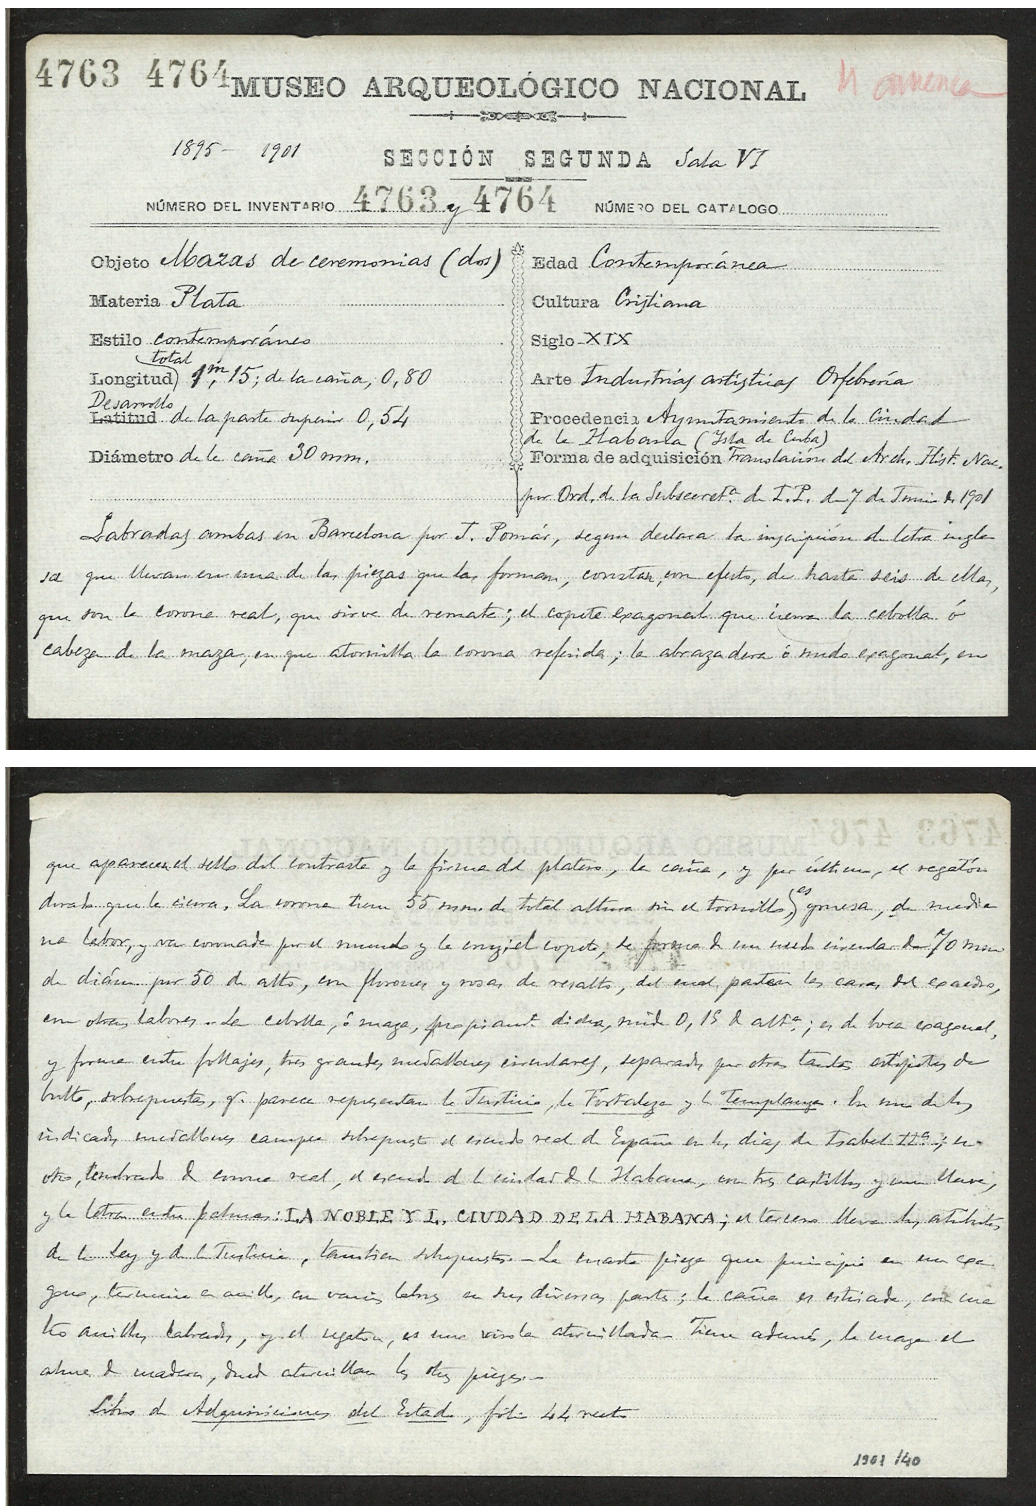 4763 4764
MUSEO ARQUEOLÓGICO NACIONAL
1895 - 1901
SECCIÓN SEGUNDA Sala VI
NÚMERO DEL INVENTARIO 4763 y 4764 NÚMERO DEL CATÁLOGO
Objeto Mazas de ceremonias (dos)
Materia Plata
Estilo contemporáneo
total
Longitud 1m,15; de la caña, 0,80
Desarrollo
Latitud de la parte superior 0,54
Diámetro de la caña 30 mm.
Edad Contemporánea
Cultura Cristiana
Siglo XIX
Arte Industrias artísticas Orfebrería
Procedencia Ayuntamiento de la Ciudad
de la Habana (Isla de Cuba)
Forma de adquisición Translación del Arch. Hist. Nac.
por Ord. de la Subsecretª de I. P. de 7 de Junio de 1901
Labradas ambas en Barcelona por J. Pomár, segun declara la inscripción de letra ingle
sa que llevan en una de las piezas que las forman, constan, con efecto, de hasta seis de ellas,
que son la corona real, que sirve de remate; el copete exagonal que cierra la cebolla ó
cabeza de la maza, en que atornilla la corona referida; la abrazadera ó nudo exagonal, en
que aparecen el sello del contraste y la firma del platero, la caña, y por último, el regatón
dorado que la cierra. La corona tiene 55 mm. de total altura sin el tornillo, es gruesa, de media
na labor, y va coronada por el mundo y la cruz; el copete, de forma de un nudo circular de 70 mm
de diám. por 50 de alto, con florones y rosas de resalto, del cual parten las caras del exaedro,
con otras labores. La cebolla, ó maza, propiamte dicha, mide 0,15 de altª; es de boca exagonal,
y forma entre follajes, tres grandes medallones circulares, separados por otros tantos estípites de
bulto, sobrepuestos, q. parece representan la Justicia, la Fortaleza y la Templanza. En uno de los
indicados medallones campea sobrepuesto el escudo real de España en los dias de Isabel IIª; en
otro, timbrado de corona real, el escudo de la ciudad de la Habana, con tres castillos y una llave,
y la letra entre palmas: LA NOBLE Y L. CIUDAD DE LA HABANA; el tercero lleva los atributos
de la Ley y de la Justicia, tambien sobrepuestos. La cuarta pieza que principia en un exá
gono, termina en anillo, con varias labores en sus diversas partes; la caña es estriada, con cua
tro anillos labrados, y el regaton, es una virola atornillada. Tiene además, la maza el
alma de madera, donde atornillan las otras piezas.
Libro de Adquisiciones del Estado, fólio 44 recto
1901/40